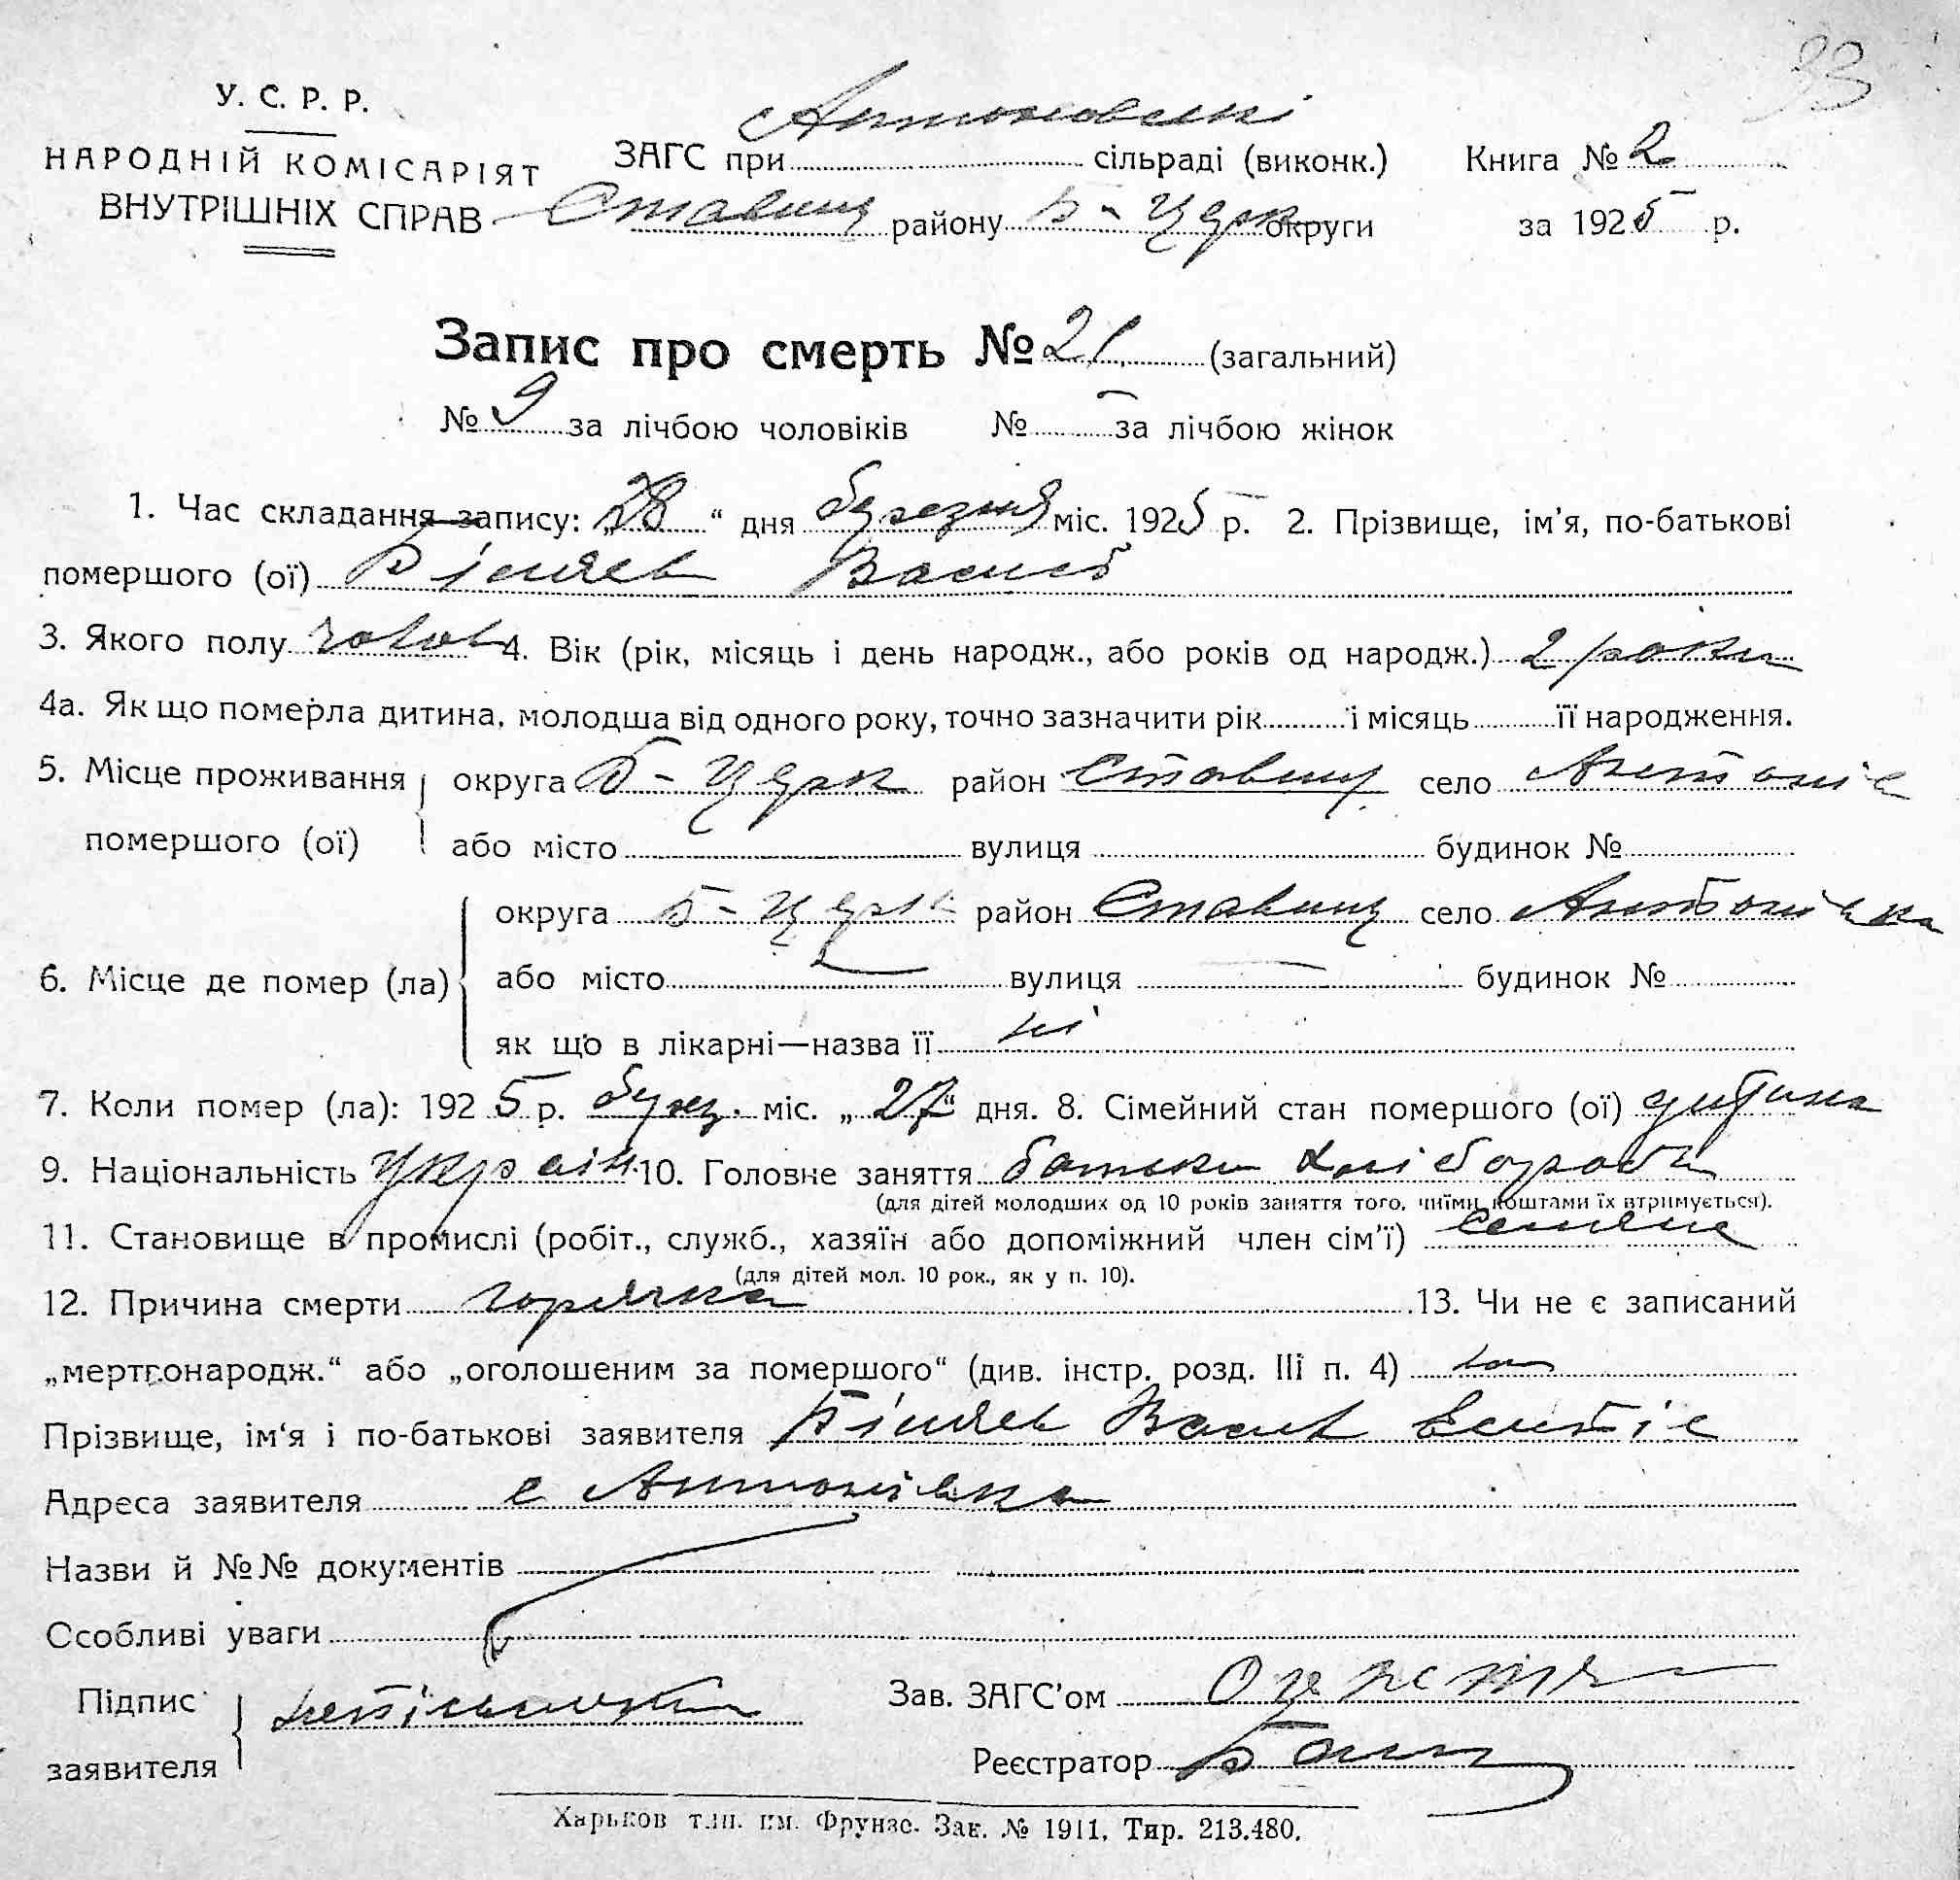 33
У. С. Р. Р.
НАРОДНІЙ КОМІСАРІЯТ
ВНУТРІШНІХ СПРАВ
ЗАГС при Антоновській сільраді (виконк.) Книга № 2
Ставищ району Б-Церк округи за 1925 р.
Запис про смерть № 21 (загальний)
№ 9 за лічбою чоловіків № — за лічбою жінок
1. Час складання запису: „28“ дня березня міс. 1925 р. 2. Прізвище, ім’я, по-батькові
помершого (ої) Василь
3. Якого полу чолов 4. Вік (рік, місяць і день народж., або років од народж.) 2 роки
4а. Як що померла дитина, молодша від одного року, точно зазначити рік і місяць її народження.
5. Місце проживання округа Б-Церк район Ставищ село Антонів
помершого (ої) або місто вулиця будинок №
округа Б-Церк район Ставищ село Антонівка
6. Місце де помер (ла) або місто — вулиця — будинок №
як що в лікарні—назва її ні
7. Коли помер (ла): 1925 р. берез. міс. „27“ дня. 8. Сімейний стан помершого (ої) дитина
9. Національність Україн. 10. Головне заняття батьки хлібороби
(для дітей молодших од 10 років заняття того, чиїми коштами їх втримується).
11. Становище в промислі (робіт., служб., хазяїн або допоміжний член сім’ї)
(для дітей мол. 10 рок., як у п. 10).
12. Причина смерти горячка 13. Чи не є записаний
„мертвонародж.“ або „оголошеним за помершого“ (див. інстр. розд. III п. 4)
Прізвище, ім‘я і по-батькові заявителя
Адреса заявителя с Антонівка
Назви й №№ документів
Особливі уваги
Підпис заявителя Зав. ЗАГС’ом
Реєстратор
Харьков тип. им. Фрунзе. Зак. № 1911. Тир. 213.480.